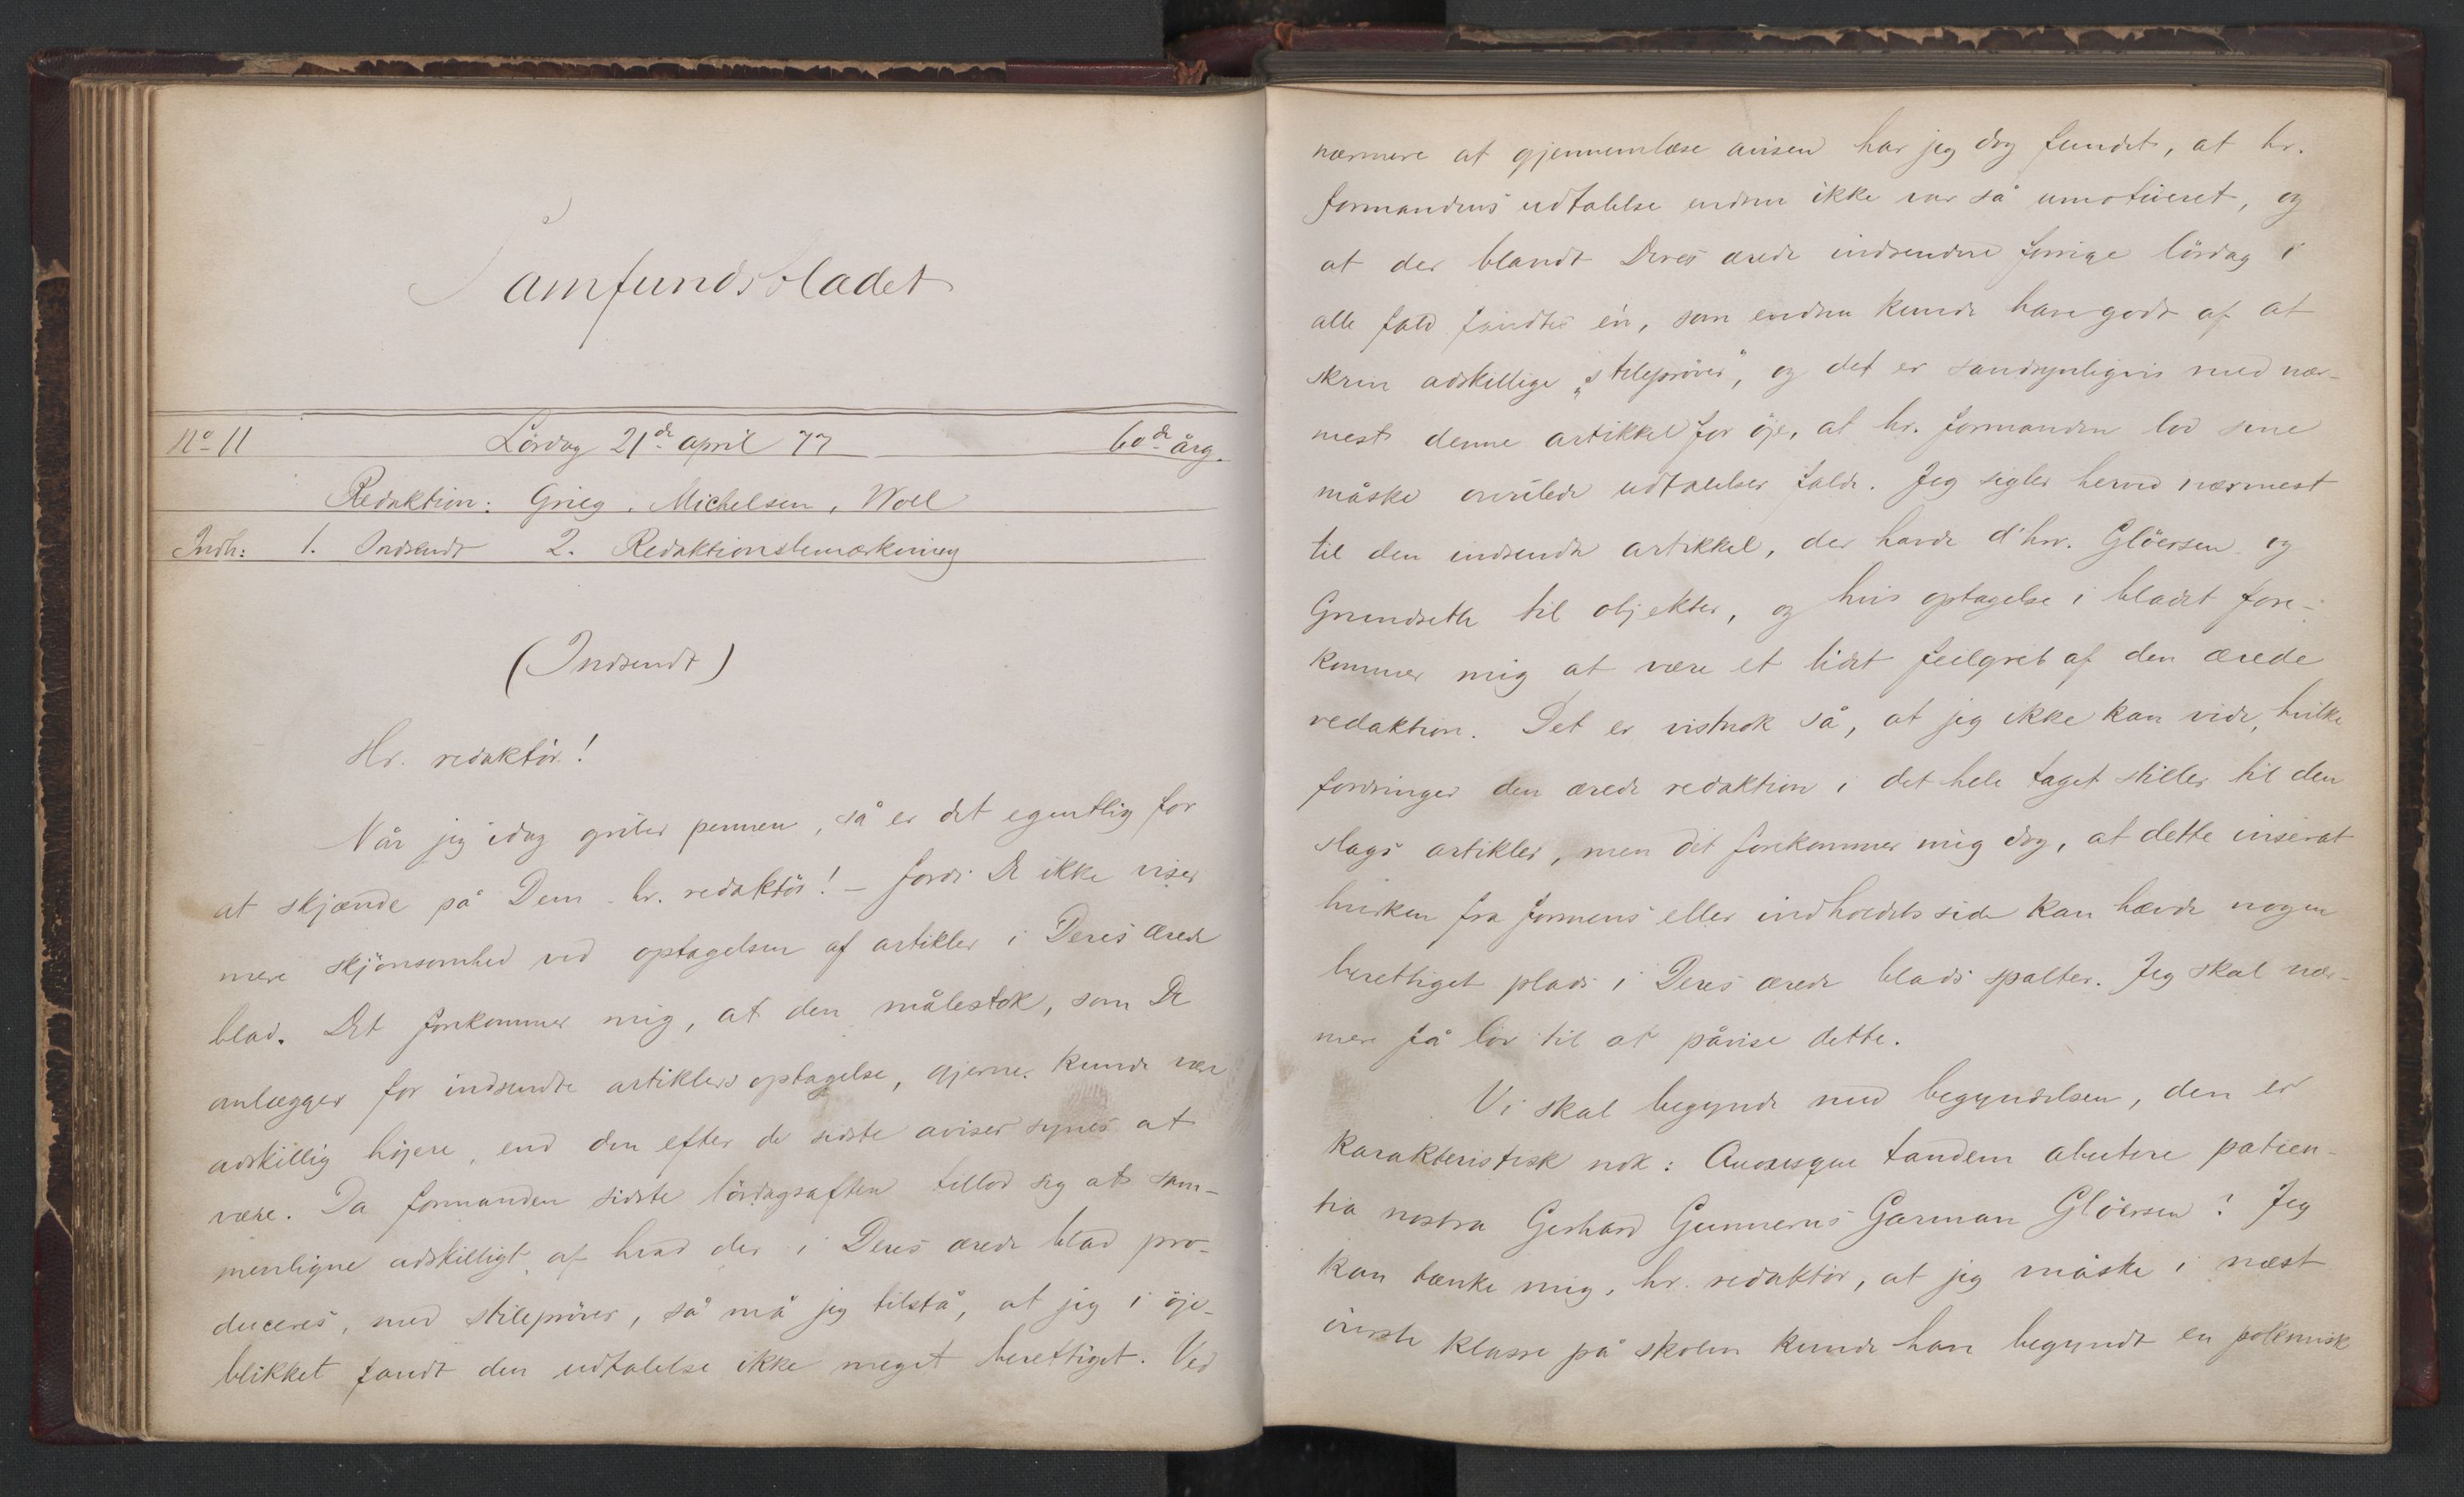 Samfundsbladet
No 11 Lördag 21de april 77 60de årg.
Redaktion: Grieg, Michelsen, Woll
Indh: 1. Indsendt 2. Redaktionsbemærkning
(Indsendt)
Hr. redaktör!
Når jeg idag griber pennen, så er det egentlig for
at skjænde på Dem hr. redaktör! – fordi De ikke viser
mere skjönsomhed ved optagelsen af artikler i Deres ærede
blad. Det forekommer mig, at den målestok, som De
anlægger for indsendte artiklers optagelse, gjerne kunde være
adskillig höjere, end den efter de sidste aviser synes at
være. Da formanden sidste lördagsaften tillod sig at sam-
menligne adskilligt af hvad der i Deres ærede blad pro-
duceres, med stilepröver, så må jeg tilstå, at jeg i öje-
blikket fandt den udtalelse ikke meget berettiget. Ved
nærmere at gjennemlæse avisen har jeg dog fundet, at hr.
formandens udtalelse endnu ikke var så umotiveret, og
at der blandt Deres ærede indsendere forrige lördag i
alle fald fandtes én, som endnu kunde have godt af at
skrive adskillige „stilepröver", og det er sandsynligvis med nær-
mest denne artikkel for öje, at hr. formanden lod sine
måske overilede udtalelser falde. Jeg sigter herved nærmest
til den indsendte artikkel, der havde d'hrr. Glöersen og
Grundseth til objekter, og hvis optagelse i bladet fore-
kommer mig at være et lidet feilgreb af den ærede
redaktion. Det er vistnok så, at jeg ikke kan vide, hvilke
fordringer den ærede redaktion i det hele taget stiller til den
slags artikler, men det forekommer mig dog, at dette inserat
hverken fra formens eller indholdets side kan hævde nogen
berettiget plads i Deres ærede blads spalter. Jeg skal nær-
mere få lov til at påvise dette.
Vi skal begynde med begyndelsen, den er
karakteristisk nok: Quousque tandem abutere patien-
tia nostra Gerhard Gunnerus Garman Glöersen? Jeg
kan tænke mig, hr. redaktör, at jeg måske i næst
överste klasse på skolen kunde have begyndt en polemisk